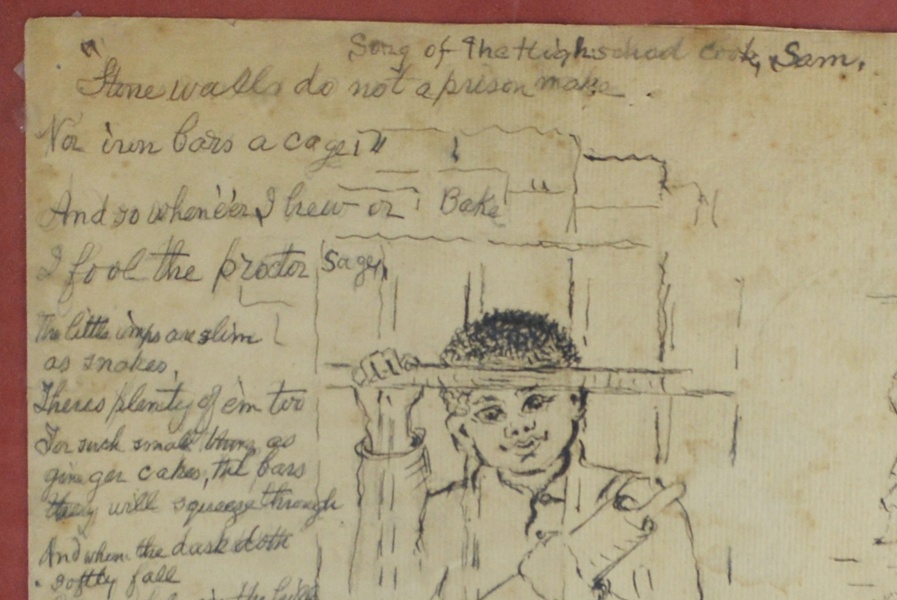 Song of the Highschool cook, Sam.
"Stone walls do not a prison make
Nor iron bars a cage."
And so whene'er I brew or Bake
I fool the proctor Sage,
The little imps are slim
as snakes,
Theres plenty of em too
For such small things as
ginger cakes, the bars
they will squeeze through
And when the dusk doth
softly fall